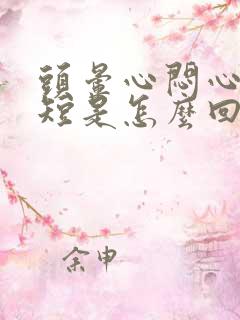 頭暈心悶心
短是怎麼回
余申